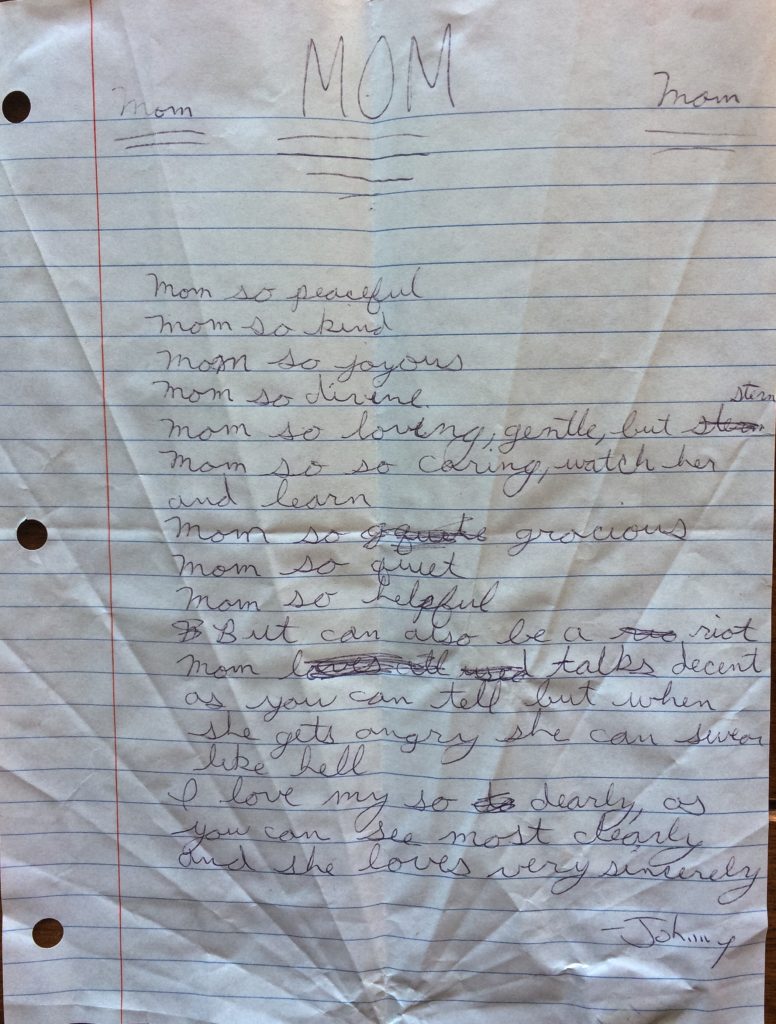 MOM
Mom Mom
Mom so peaceful
Mom so kind
Mom so joyous
Mom so divine.
stern
Mom so loving, gentle, but stern
Mom so so caring, watch her
and learn
Mom so gracious
Mom so quiet
Mom so helpful
But can also be a riot
Mom talks decent
as you can tell but when
she gets angry she can swear
like hell
I love my so dearly, as
you can see most clearly
and she loves very sincerely
-Johnny